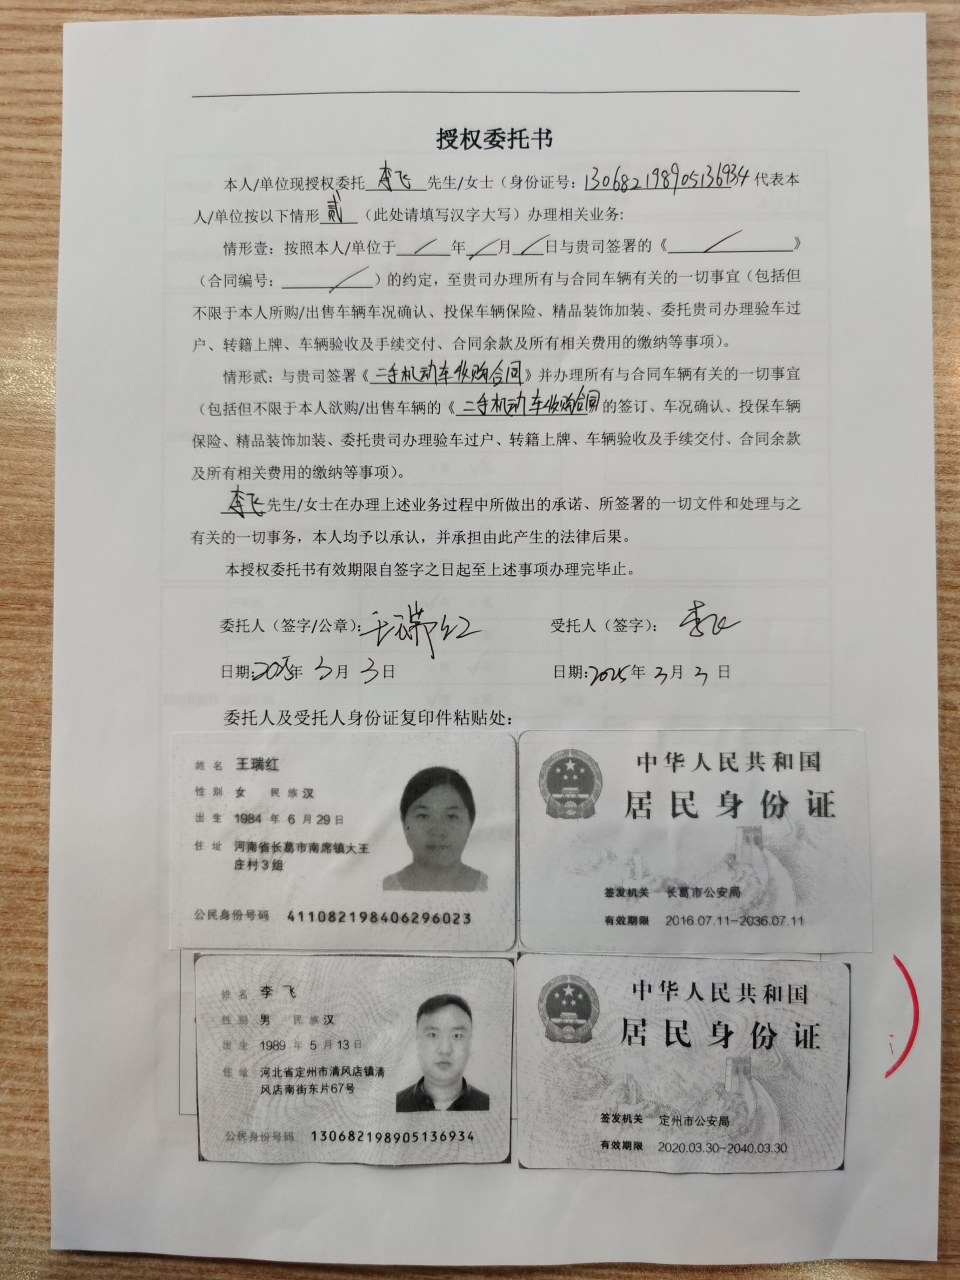 授权委托书
本人/单位现授权委托李飞先生/女士（身份证号：130682198905136934代表本
人/单位按以下情形贰（此处请填写汉字大写）办理相关业务:
情形壹：按照本人/单位于／年／月／日与贵司签署的《／》
（合同编号：／）的约定，至贵司办理所有与合同车辆有关的一切事宜（包括但
不限于本人所购/出售车辆车况确认、投保车辆保险、精品装饰加装、委托贵司办理验车过
户、转籍上牌、车辆验收及手续交付、合同余款及所有相关费用的缴纳等事项）。
情形贰：与贵司签署《二手机动车收购合同》并办理所有与合同车辆有关的一切事宜
（包括但不限于本人欲购/出售车辆的《二手机动车收购合同的签订、车况确认、投保车辆
保险、精品装饰加装、委托贵司办理验车过户、转籍上牌、车辆验收及手续交付、合同余款
及所有相关费用的缴纳等事项）。
李飞先生/女士在办理上述业务过程中所做出的承诺、所签署的一切文件和处理与之
有关的一切事务，本人均予以承认，并承担由此产生的法律后果。
本授权委托书有效期限自签字之日起至上述事项办理完毕止。
委托人（签字/公章）：王瑞红 受托人（签字）：李飞
日期:2025年3月3日 日期:2025年3月3日
委托人及受托人身份证复印件粘贴处：
姓名 王瑞红
性别 女 民族 汉
出生 1984年6月29日
住址 河南省长葛市南席镇大王
庄村3组
公民身份号码 411082198406296023
中华人民共和国
居民身份证
签发机关 长葛市公安局
有效期限 2016.07.11-2036.07.11
姓名 李飞
性别 男 民族 汉
出生 1989年5月13日
住址 河北省定州市清风店镇清
风店南街东片67号
公民身份号码 130682198905136934
中华人民共和国
居民身份证
签发机关 定州市公安局
有效期限 2020.03.30-2040.03.30